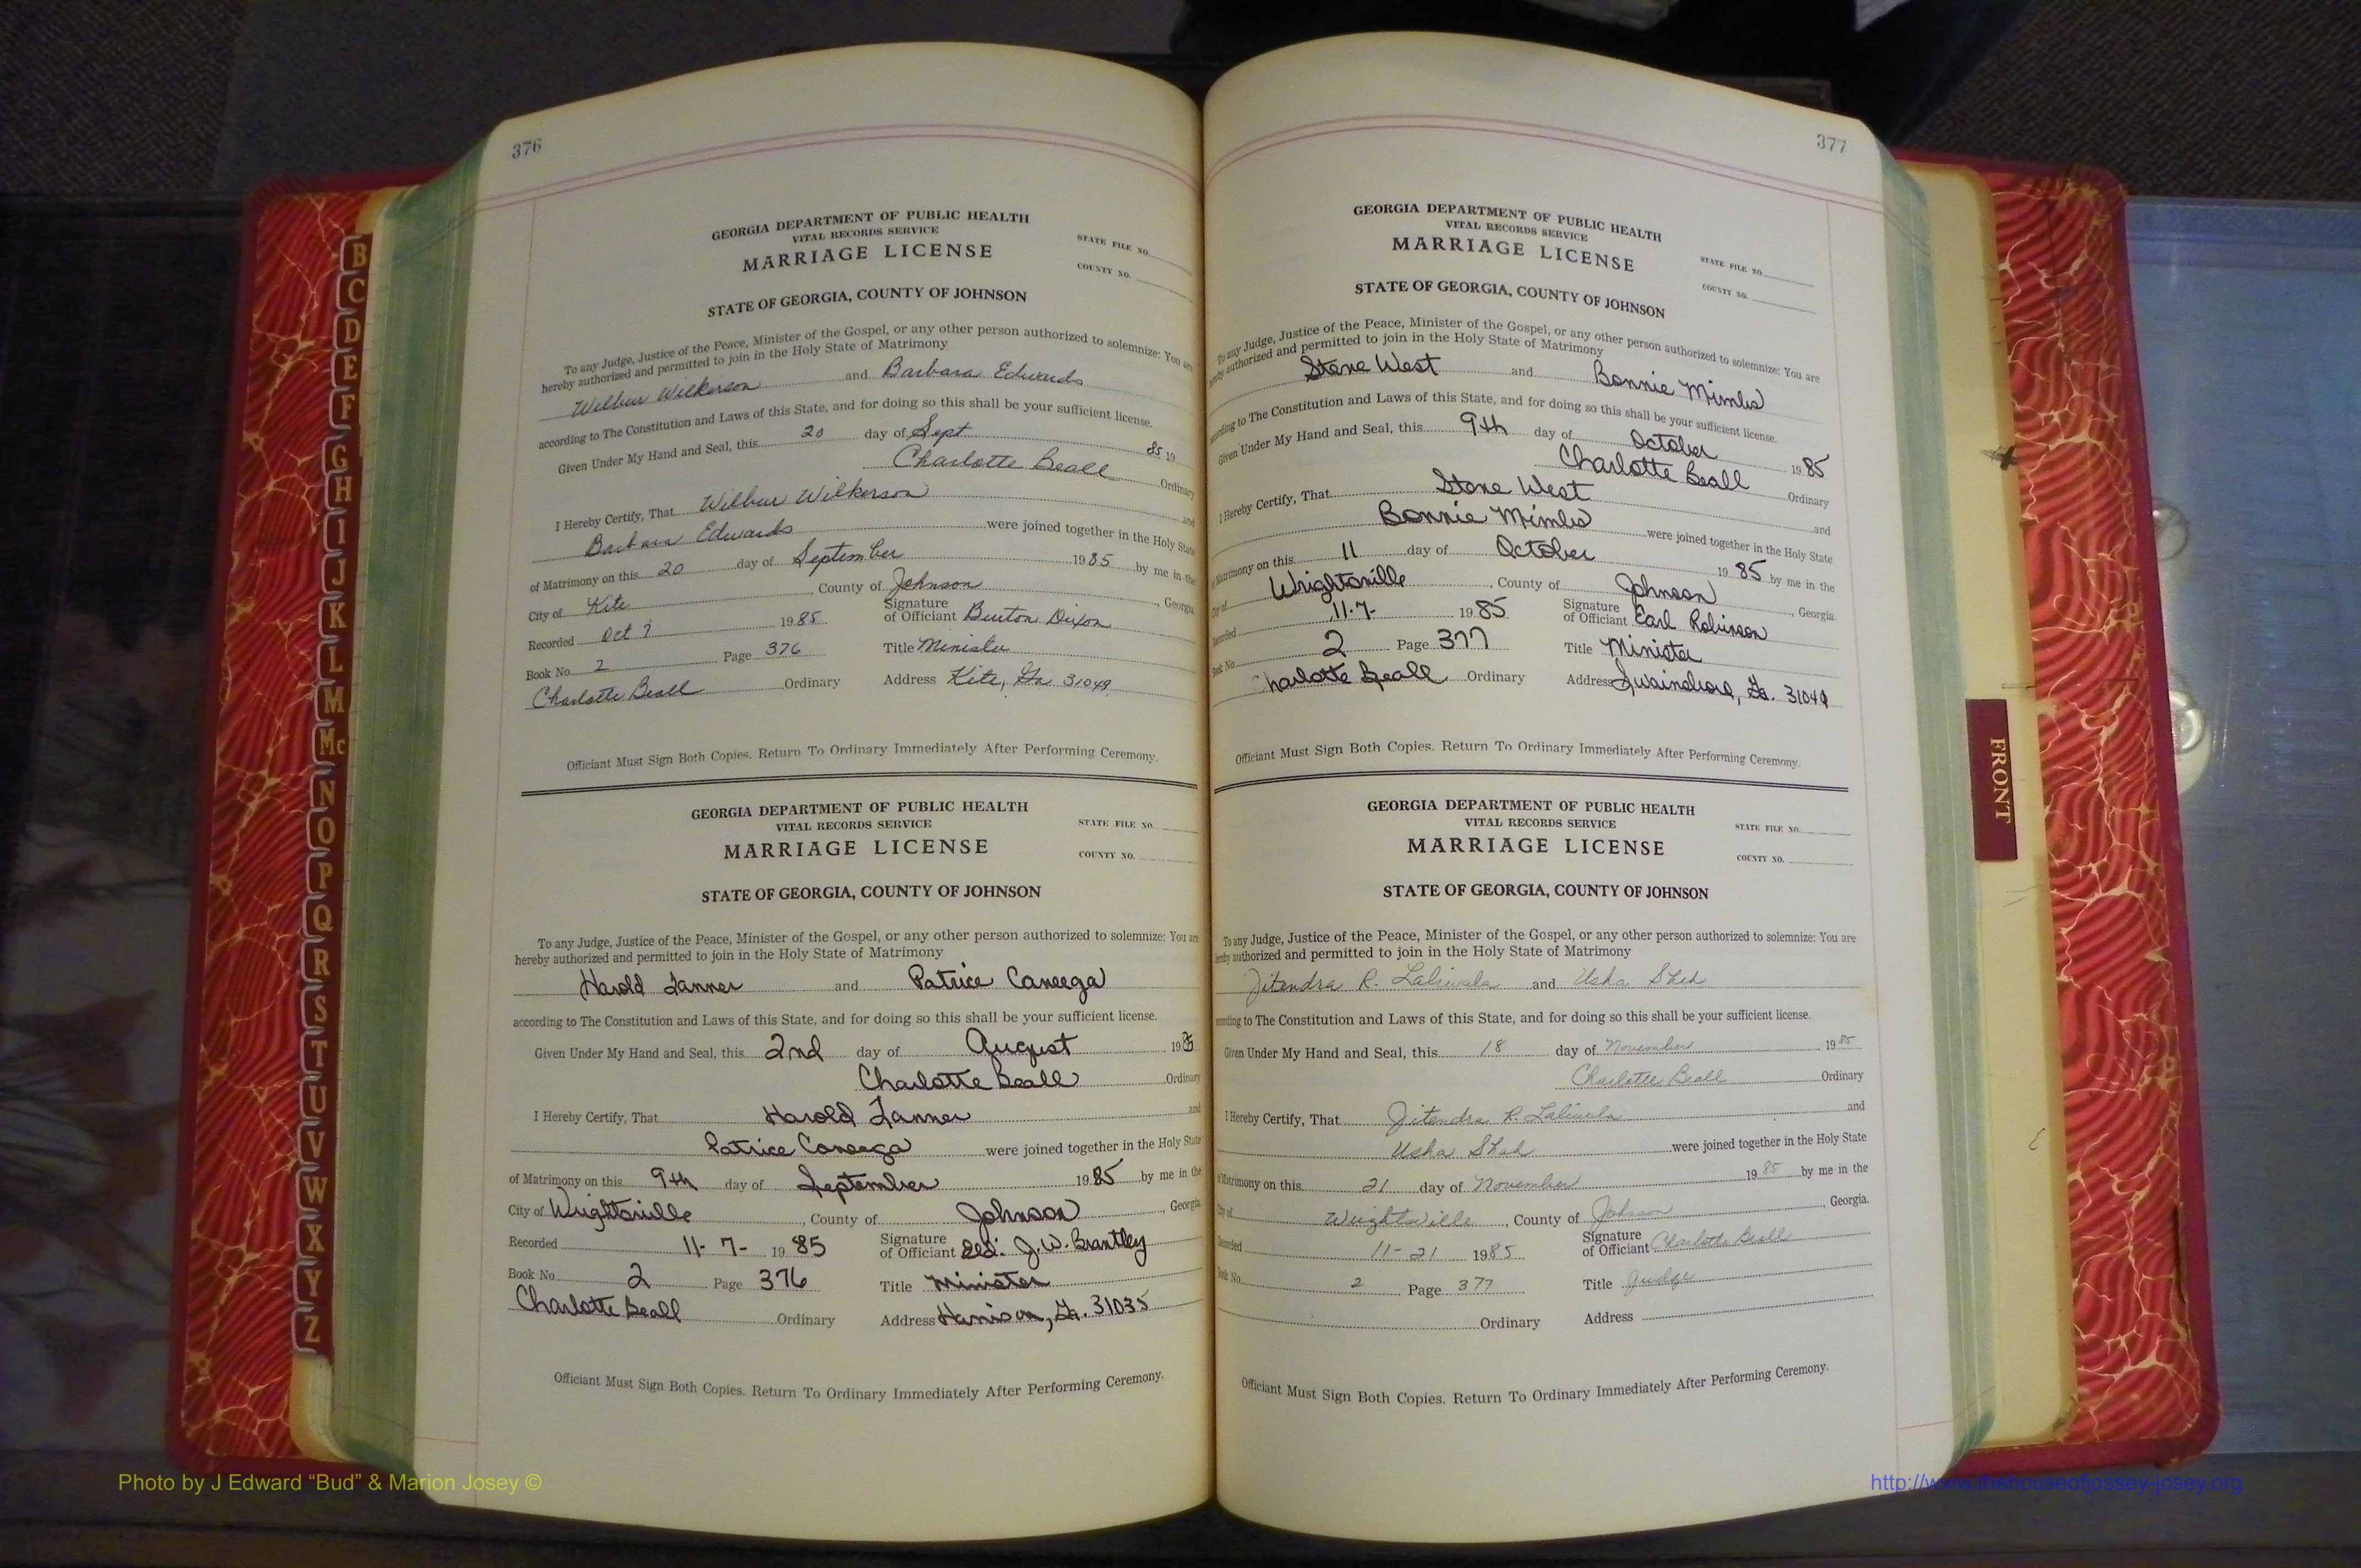 376
GEORGIA DEPARTMENT OF PUBLIC HEALTH
VITAL RECORDS SERVICE
MARRIAGE LICENSE
STATE FILE NO.
COUNTY NO.
STATE OF GEORGIA, COUNTY OF JOHNSON
To any Judge, Justice of the Peace, Minister of the Gospel, or any other person authorized to solemnize: You are
hereby authorized and permitted to join in the Holy State of Matrimony
Wilbur Wilkerson and Barbara Edwards
according to The Constitution and Laws of this State, and for doing so this shall be your sufficient license.
Given Under My Hand and Seal, this 20 day of Sept 85 19
Charlotte Beall Ordinary
I Hereby Certify, That Wilbur Wilkerson and
Barbara Edwards were joined together in the Holy State
of Matrimony on this 20 day of September 1985 by me in the
City of Kite, County of Johnson, Georgia.
Recorded Oct 7 1985 Signature of Officiant Burton Dixon
Book No. 2 Page 376 Title Minister
Charlotte Beall Ordinary Address Kite, Ga 31049
Officiant Must Sign Both Copies. Return To Ordinary Immediately After Performing Ceremony.
GEORGIA DEPARTMENT OF PUBLIC HEALTH
VITAL RECORDS SERVICE
MARRIAGE LICENSE
STATE FILE NO.
COUNTY NO.
STATE OF GEORGIA, COUNTY OF JOHNSON
To any Judge, Justice of the Peace, Minister of the Gospel, or any other person authorized to solemnize: You are
hereby authorized and permitted to join in the Holy State of Matrimony
Harold Tanner and Patrice Caneega
according to The Constitution and Laws of this State, and for doing so this shall be your sufficient license.
Given Under My Hand and Seal, this 2nd day of August 19
Charlotte Beall Ordinary
I Hereby Certify, That Harold Tanner and
Patrice Caneega were joined together in the Holy State
of Matrimony on this 9th day of September 1985 by me in the
City of Wrightsville, County of Johnson, Georgia
Recorded 11-7- 1985 Signature of Officiant J.W. Brantley
Book No. 2 Page 376 Title Minister
Charlotte Beall Ordinary Address Harrison, Ga. 31035
Officiant Must Sign Both Copies. Return To Ordinary Immediately After Performing Ceremony.
377
GEORGIA DEPARTMENT OF PUBLIC HEALTH
VITAL RECORDS SERVICE
MARRIAGE LICENSE
STATE FILE NO.
COUNTY NO.
STATE OF GEORGIA, COUNTY OF JOHNSON
To any Judge, Justice of the Peace, Minister of the Gospel, or any other person authorized to solemnize: You are
hereby authorized and permitted to join in the Holy State of Matrimony
Stone West and Bonnie Mimbs
according to The Constitution and Laws of this State, and for doing so this shall be your sufficient license.
Given Under My Hand and Seal, this 9th day of October 1985
Charlotte Beall Ordinary
I Hereby Certify, That Stone West and
Bonnie Mimbs were joined together in the Holy State
of Matrimony on this 11 day of October 1985 by me in the
City of Wrightsville, County of Johnson, Georgia.
Recorded 11-7- 1985 Signature of Officiant Earl Robinson
Book No. 2 Page 377 Title Minister
Charlotte Beall Ordinary Address Swainsboro, Ga. 31049
Officiant Must Sign Both Copies. Return To Ordinary Immediately After Performing Ceremony.
GEORGIA DEPARTMENT OF PUBLIC HEALTH
VITAL RECORDS SERVICE
MARRIAGE LICENSE
STATE FILE NO.
COUNTY NO.
STATE OF GEORGIA, COUNTY OF JOHNSON
To any Judge, Justice of the Peace, Minister of the Gospel, or any other person authorized to solemnize: You are
hereby authorized and permitted to join in the Holy State of Matrimony
Jitendra R. Laliwala and Usha Shah
according to The Constitution and Laws of this State, and for doing so this shall be your sufficient license.
Given Under My Hand and Seal, this 18 day of November 1985
Charlotte Beall Ordinary
I Hereby Certify, That Jitendra R. Laliwala and
Usha Shah were joined together in the Holy State
of Matrimony on this 21 day of November 1985 by me in the
City of Wrightsville, County of Johnson, Georgia.
Recorded 11-21 1985 Signature of Officiant Charlotte Beall
Book No. 2 Page 377 Title Judge
Ordinary Address
Officiant Must Sign Both Copies. Return To Ordinary Immediately After Performing Ceremony.
B
C
D
E
F
G
H
I
J
K
L
M
Mc
N
O
P
Q
R
S
T
U
V
W
X
Y
Z
FRONT
Photo by J Edward “Bud” & Marion Josey ©
http://www.thehouseofjossey-josey.org